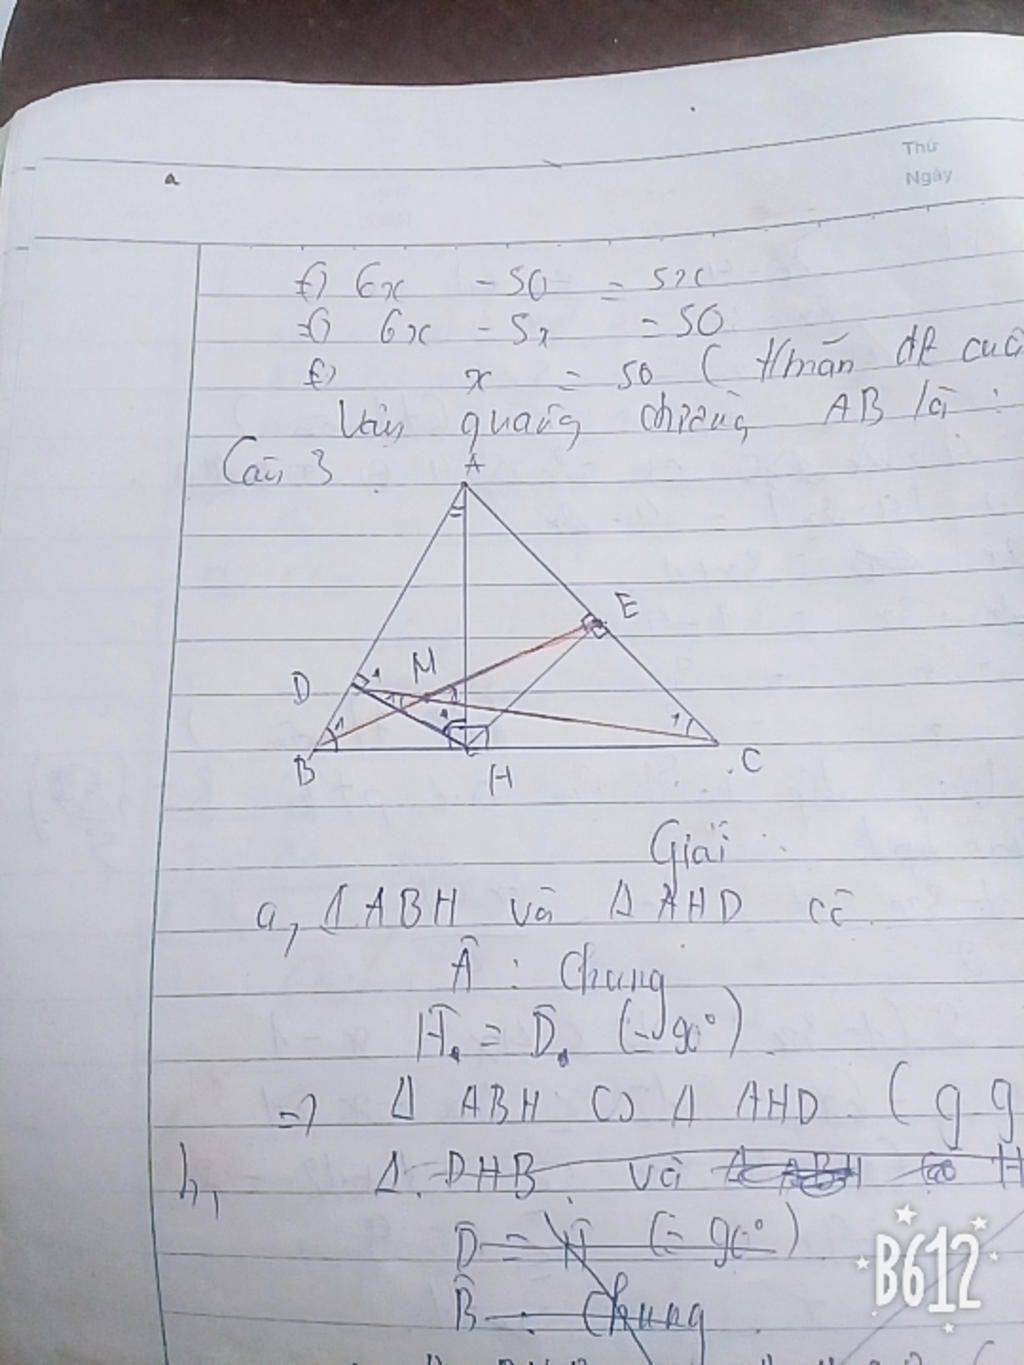 Thứ
Ngày
a
6x - 50 = 5x
6x - 5x = 50
x = 50 ( t/mãn đk
Vậy quãng AB là :
Câu 3
A
E
D M
B H C
Giải
a, Δ ABH và Δ AHD có
Â : Chung
Ĥ = D̂ (= 90°)
=> Δ ABH ∽ Δ AHD ( g g
b, Δ DHB và
D̂ = Ĥ (= 90°)
B̂ : Chung
B612